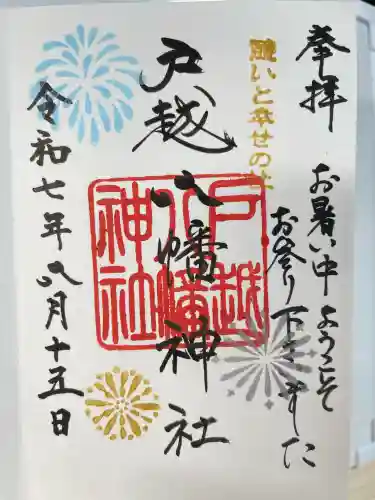 奉拝
お暑い中ようこそ
お参り下さいました
願いと幸せの社
戸越八幡神社
戸越八幡神社
令和七年八月十五日